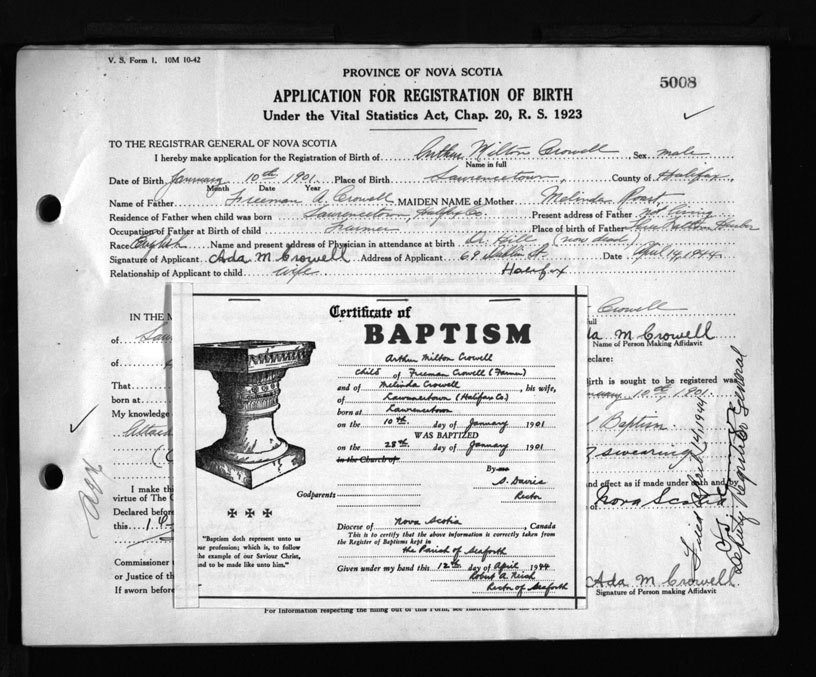 V. S. Form 1. 10M 10-42
PROVINCE OF NOVA SCOTIA
5008
APPLICATION FOR REGISTRATION OF BIRTH
Under the Vital Statistics Act, Chap. 20, R. S. 1923
TO THE REGISTRAR GENERAL OF NOVA SCOTIA
I hereby make application for the Registration of Birth of Arthur Milton Crowell, Sex male
Name in full
Date of Birth January 10th 1901 Place of Birth Lawrencetown, County of Halifax
Month Date Year
Name of Father Freeman A. Crowell MAIDEN NAME of Mother Melinda
Residence of Father when child was born Lawrencetown, Halifax Co. Present address of Father not living
Occupation of Father at Birth of child Farmer Place of birth of Father Harbor
Race English Name and present address of Physician in attendance at birth Dr. Hill (now dead)
Signature of Applicant Ada M Crowell Address of Applicant 69 St. Date April 14, 1944
Relationship of Applicant to child Wife Halifax
IN THE M
of
of
That
born at
My knowledge
Attach
I make thi
virtue of The
Declared before
this 14
Commissioner
or Justice of th
If sworn before
Certificate of
BAPTISM
Arthur Milton Crowell
Child of Freeman Crowell (Farmer)
and of Melinda Crowell, his wife,
of Lawrencetown (Halifax Co.)
born at Lawrencetown
on the 10th. day of January 1901
WAS BAPTIZED
on the 28th. day of January 1901
in the Church of
By
S. Davis
Rector
Godparents
Diocese of Nova Scotia, Canada
This is to certify that the above information is correctly taken
from the Register of Baptisms kept in
the Parish of Seaforth
Given under my hand this 12th. day of April 1944
Robert A.
Rector of Seaforth
"Baptism doth represent unto us
our profession; which is, to follow
the example of our Saviour Christ,
and to be made like unto him."
Crowell
ull
da M Crowell
Name of Person Making Affidavit
eclare:
birth is sought to be registered was
nuary 10th, 1901.
Baptism
swearing
and effect as if made under oath and by
of Nova Scotia
Filed April 14, 1944
Deputy Registrar General
Ada M Crowell
Signature of Person making Affidavit
For Information respecting the filling out of this Form, see Instructions on the reverse